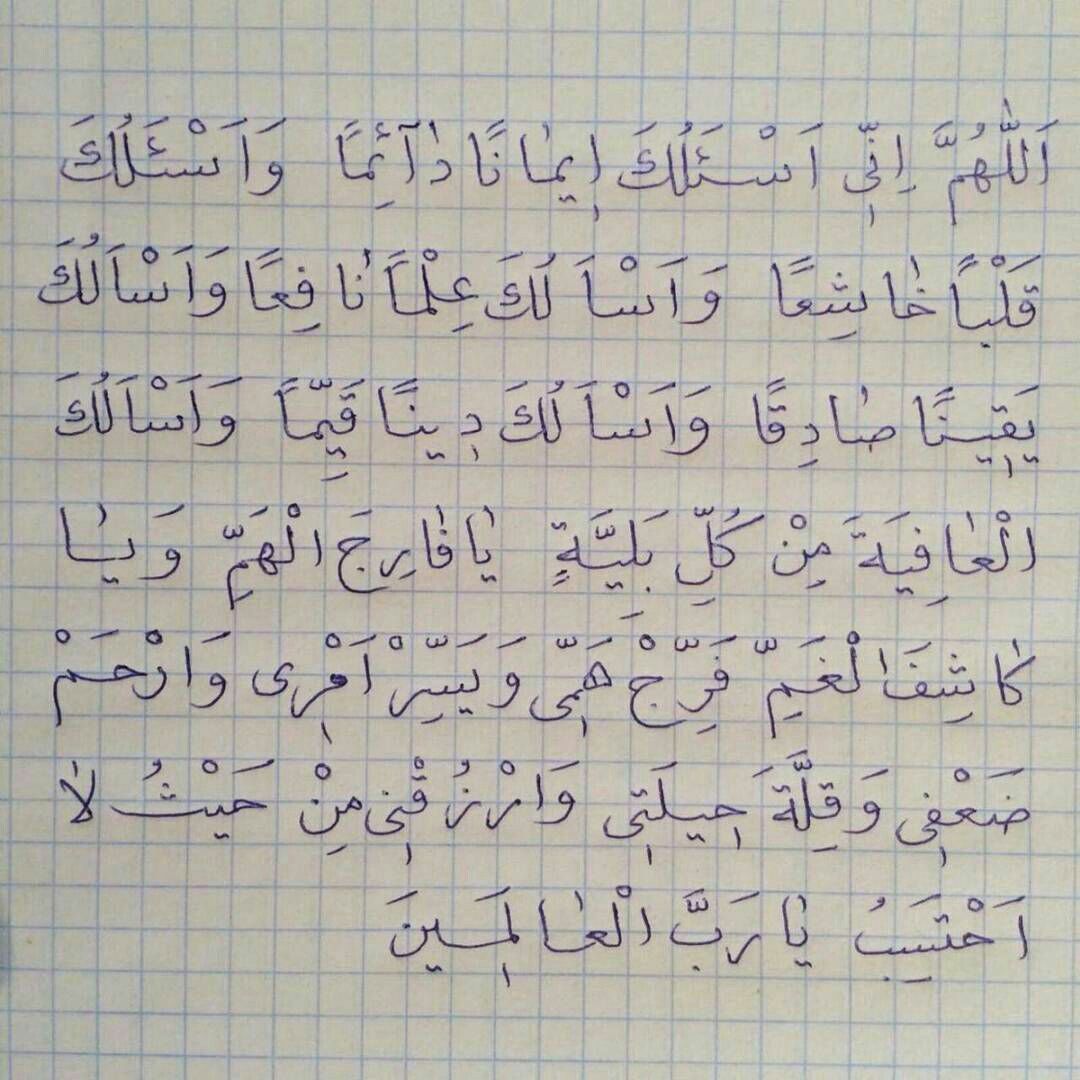 اَللّٰهُمَّ اِنّٖی اَسْئَلُكَ اٖیمٰانًا دٰآئِمًا وَاَسْئَلُكَ
قَلْباً خٰاشِعًا وَاَسْاَلُكَ عِلْماً نٰافِعًا وَاَسْاَلُكَ
یَقٖینًا صٰادِقًا وَاَسْاَلُكَ دٖینًا قَیِّماً وَاَسْاَلُكَ
الْعٰافِیَةَ مِنْ كُلِّ بَلِیَّةٍ یٰا فٰارِجَ الْهَمِّ وَیٰا
كٰاشِفَ الْغَمِّ فَرِّجْ هَمّٖی وَیَسِّرْ اَمْرٖی وَارْحَمْ
ضَعْفٖی وَقِلَّةَ حٖیلَتٖی وَارْزُقْنٖی مِنْ حَیْثُ لٰا
اَحْتَسِبُ یٰا رَبَّ الْعٰالَمٖینَ